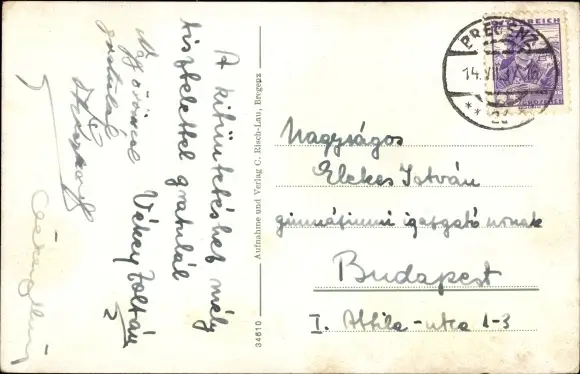 A kitüntetéshez mély
tisztelettel gratulál
Vékey Zoltán
Nagy örömmel
gratulál
34610 Aufnahme und Verlag C. Risch-Lau, Bregenz
BREGENZ
14.VII.37
ÖSTERREICH
Nagyságos
Elekes István
gimnáziumi igazgató úrnak
Budapest
I. Attila-utca 1-3